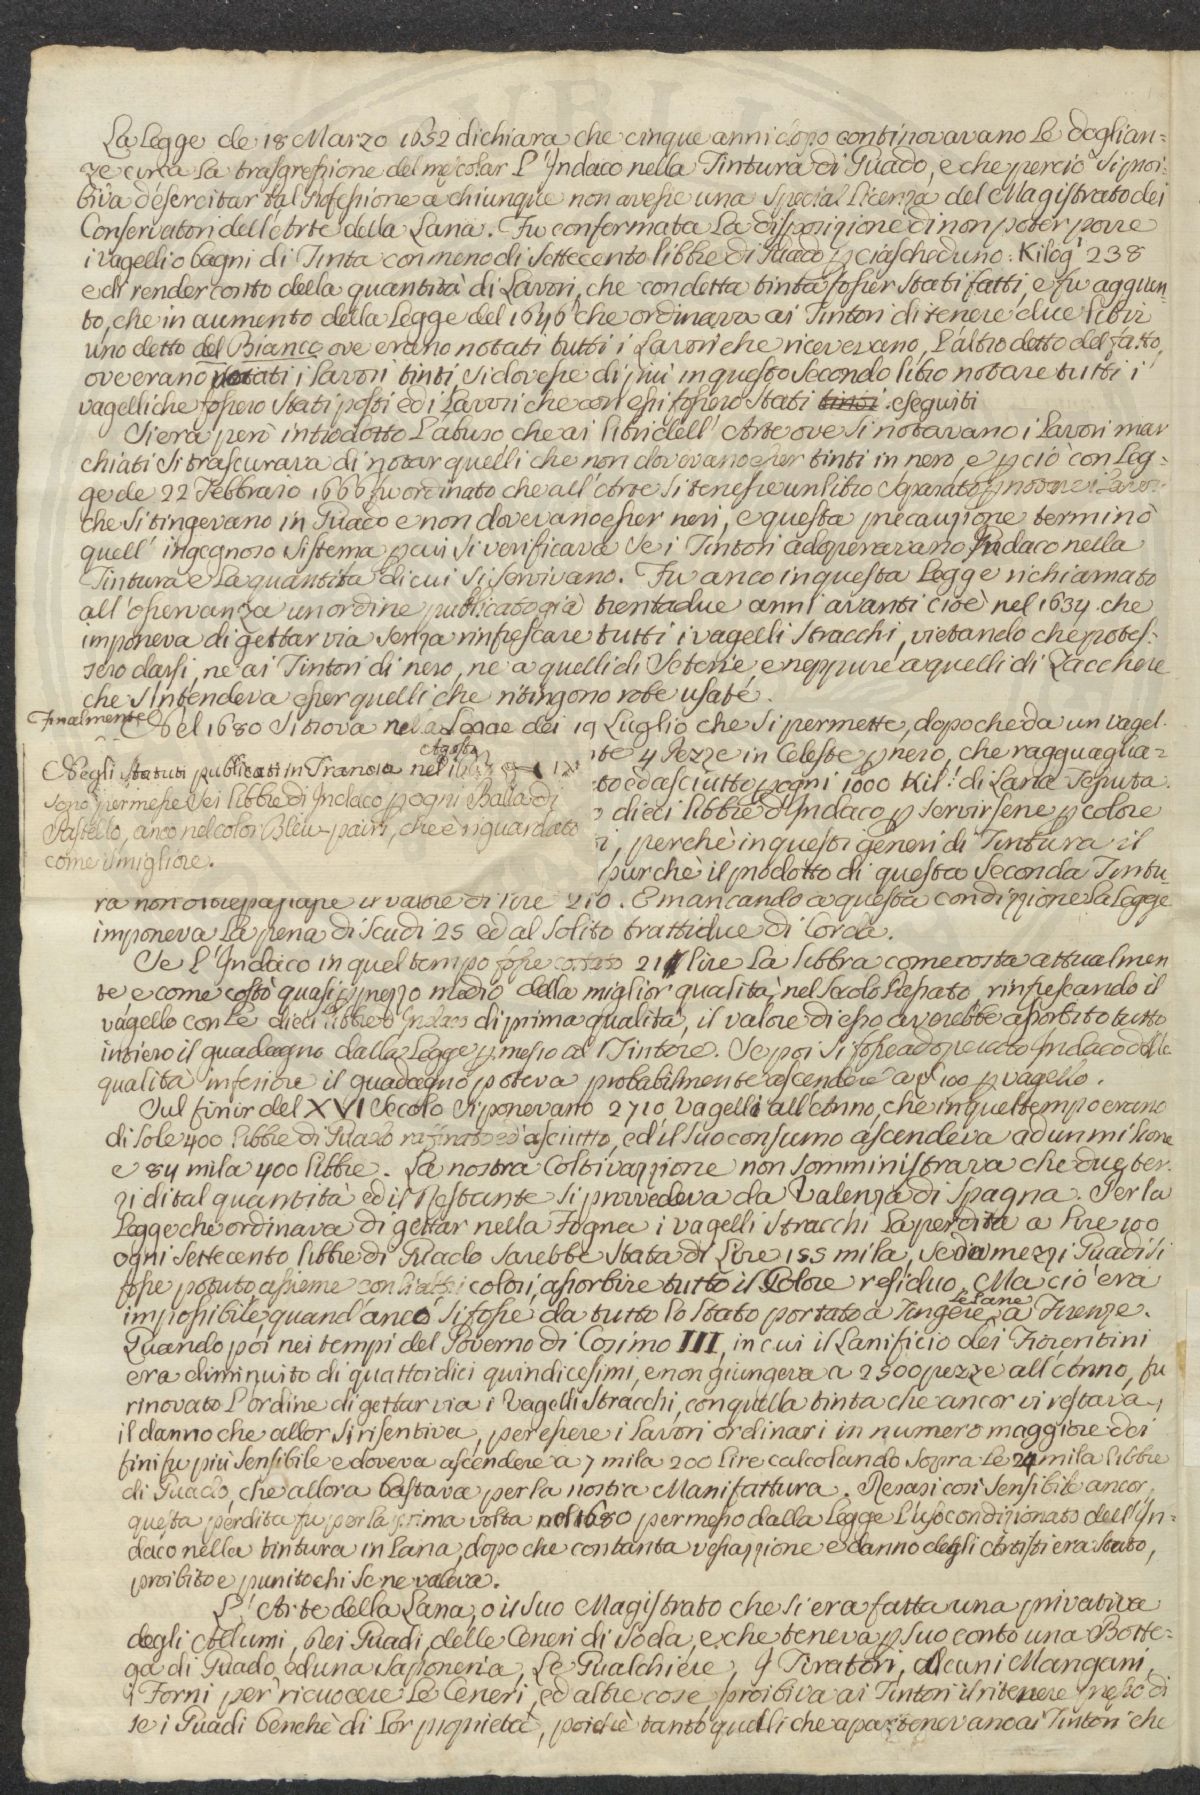 La Legge de 18 Marzo 1652 dichiara che cinque anni dopo continovavano le doglian=
ze circa la trasgressione del mescolar l'Indaco nella Tintura di Guado, e che perciò si proi=
biva d'esercitar tal Professione a chiunque non avesse una special Licenza del Magistrato dei
Conservatori dell'Arte della Lana. Fu confermata la disposizione di non poter porre
i vagelli o bagni di Tinta con meno di settecento libbre di Guado p ciascheduno: Kilog 238
e di render conto della quantità di Lavori, che con detta tinta fosser stati fatti, e fu aggiun=
to, che in aumento della Legge del 1646 che ordinava ai Tintori di tenere due libri
uno detto del Bianco ove erano notati tutti i Lavori che ricevevano, l'altro detto del fatto,
ove erano notati i lavori tinti, si dovesse di più in questo secondo libro notare tutti i
vagelli che fossero stati posti ed i Lavori che con essi fossero stati tinti eseguiti
Si era però introdotto l'abuso che ai libri dell'Arte ove si notavano i Lavori mar
chiati si trascurava di notar quelli che non dovevano esser tinti in nero, e p ciò con Leg=
ge de 22 Febbraio 1666 fu ordinato che all'Arte si tenesse un libro separato p notare i Lavori
che si tingevano in Guado e non dovevano esser neri, e questa precauzione terminò
quell'ingegnoso sistema p cui si verificava se i Tintori adoperavano Indaco nella
Tintura e la quantità di cui si servivano. Fu anco in questa Legge richiamato
all'osservanza un ordine publicato già trentadue anni avanti cioè nel 1634 che
imponeva di gettar via senza rinfrescare tutti i vagelli stracchi, vietando che potes=
sero darsi, nè ai Tintori di nero, nè a quelli di Seterie e neppure a quelli di Zacchere
che s'intendeva esser quelli che ritingono robe usate.
Finalmente
Nel 1680 si trova nella Legge dei 19 Luglio che si permette, dopo che da un vagel.
te 4 Pezze in Celeste p nero, che ragguaglia=
Agosto
Negli Statuti publicati in Francia nel
to ed asciutto p ogni 1000 Kil.i di Lana Tessuta.
sono permesse sei libbre di Indaco p ogni Balla di
dieci libbre d'Indaco p servirsene p colore
Pastello, anco nel color Bleu-pairs, che è riguardato
i, perchè in questi generi di Tintura il
come il migliore.
purchè il prodotto di questa seconda Tintu=
ra non oltrepassasse il valore di lire 210. E mancando a questa condizione la Legge
imponeva la pena di Scudi 25 ed al solito tratti due di Corda.
Se l'Indaco in quel tempo fosse costato 21 lire la libbra come costa attualmen
te e come costò quasi p prezzo medio della miglior qualità, nel Secolo Passato, rinfrescando il
vagello con le dieci libbre d'Indaco di prima qualità, il valore di esso avrebbe assorbito tutto
intiero il guadagno dalla Legge p messo al Tintore. Se poi si fosse adoperato Indaco delle
qualità inferiore il guadagno poteva probabilmente ascendere a £ 100 p vagello.
Sul finir del XVI Secolo si ponevano 2710 Vagelli all'Anno, che in quel tempo erano
di sole 400 libbre di Guado raffinato ed asciutto, ed il suo consumo ascendeva ad un milione
e 84 mila 400 libbre. La nostra Coltivazzione non somministrava che due ter=
zi di tal quantità ed il Restante si provvedeva da Valenza di Spagna. Per la
Legge che ordinava di gettar nella Fogna i vagelli stracchi la perdita a lire 100
ogni settecento libbre di Guado sarebbe stata di Lire 155 mila, se da mezzi Guadi si
fosse potuto assieme con li altri colori, assorbire tutto il Colore residuo. Ma ciò era
impossibile quand'anco si fosse da tutto lo stato portato a tingere le Lane a Firenze.
Quando poi nei tempi del Governo di Cosimo III, in cui il Lanificio dei Fiorentini
era diminuito di quattordici quindicesimi, e non giungeva a 2500 pezze all'Anno, fu
rinovato l'ordine di gettar via i Vagelli stracchi, con quella tinta che ancor vi restava,
il danno che allor si risentiva, per essere i lavori ordinari in numero maggiore dei
fini fu più sensibile e doveva ascendere a 7 mila 200 lire calcolando sopra le 24 mila libbre
di Guado, che allora bastava per la nostra Manifattura. Resasi così sensibile ancor
questa perdita fu per la prima volta nel 1680 permesso dalla Legge l'uso condizionato dell'In=
daco nella tintura in Lana, dopo che con tanta vessazzione e danno degli Artisti era stato,
proibito e punito chi se ne valeva.
L'Arte della Lana, o il suo Magistrato che si era fatta una privativa
degli Allumi, Dei Guadi, delle Ceneri di soda, e che teneva p suo conto una Botte=
ga di Guado, ed una Saponeria, Le Gualchiere, I Tiratori, Alcuni Mangani,
I Forni per ricuocere le Ceneri, ed altre cose, proibiva ai Tintori il ritenere presso di
se i Guadi benchè di lor proprietà, poichè tanto quelli che appartenevano ai Tintori che